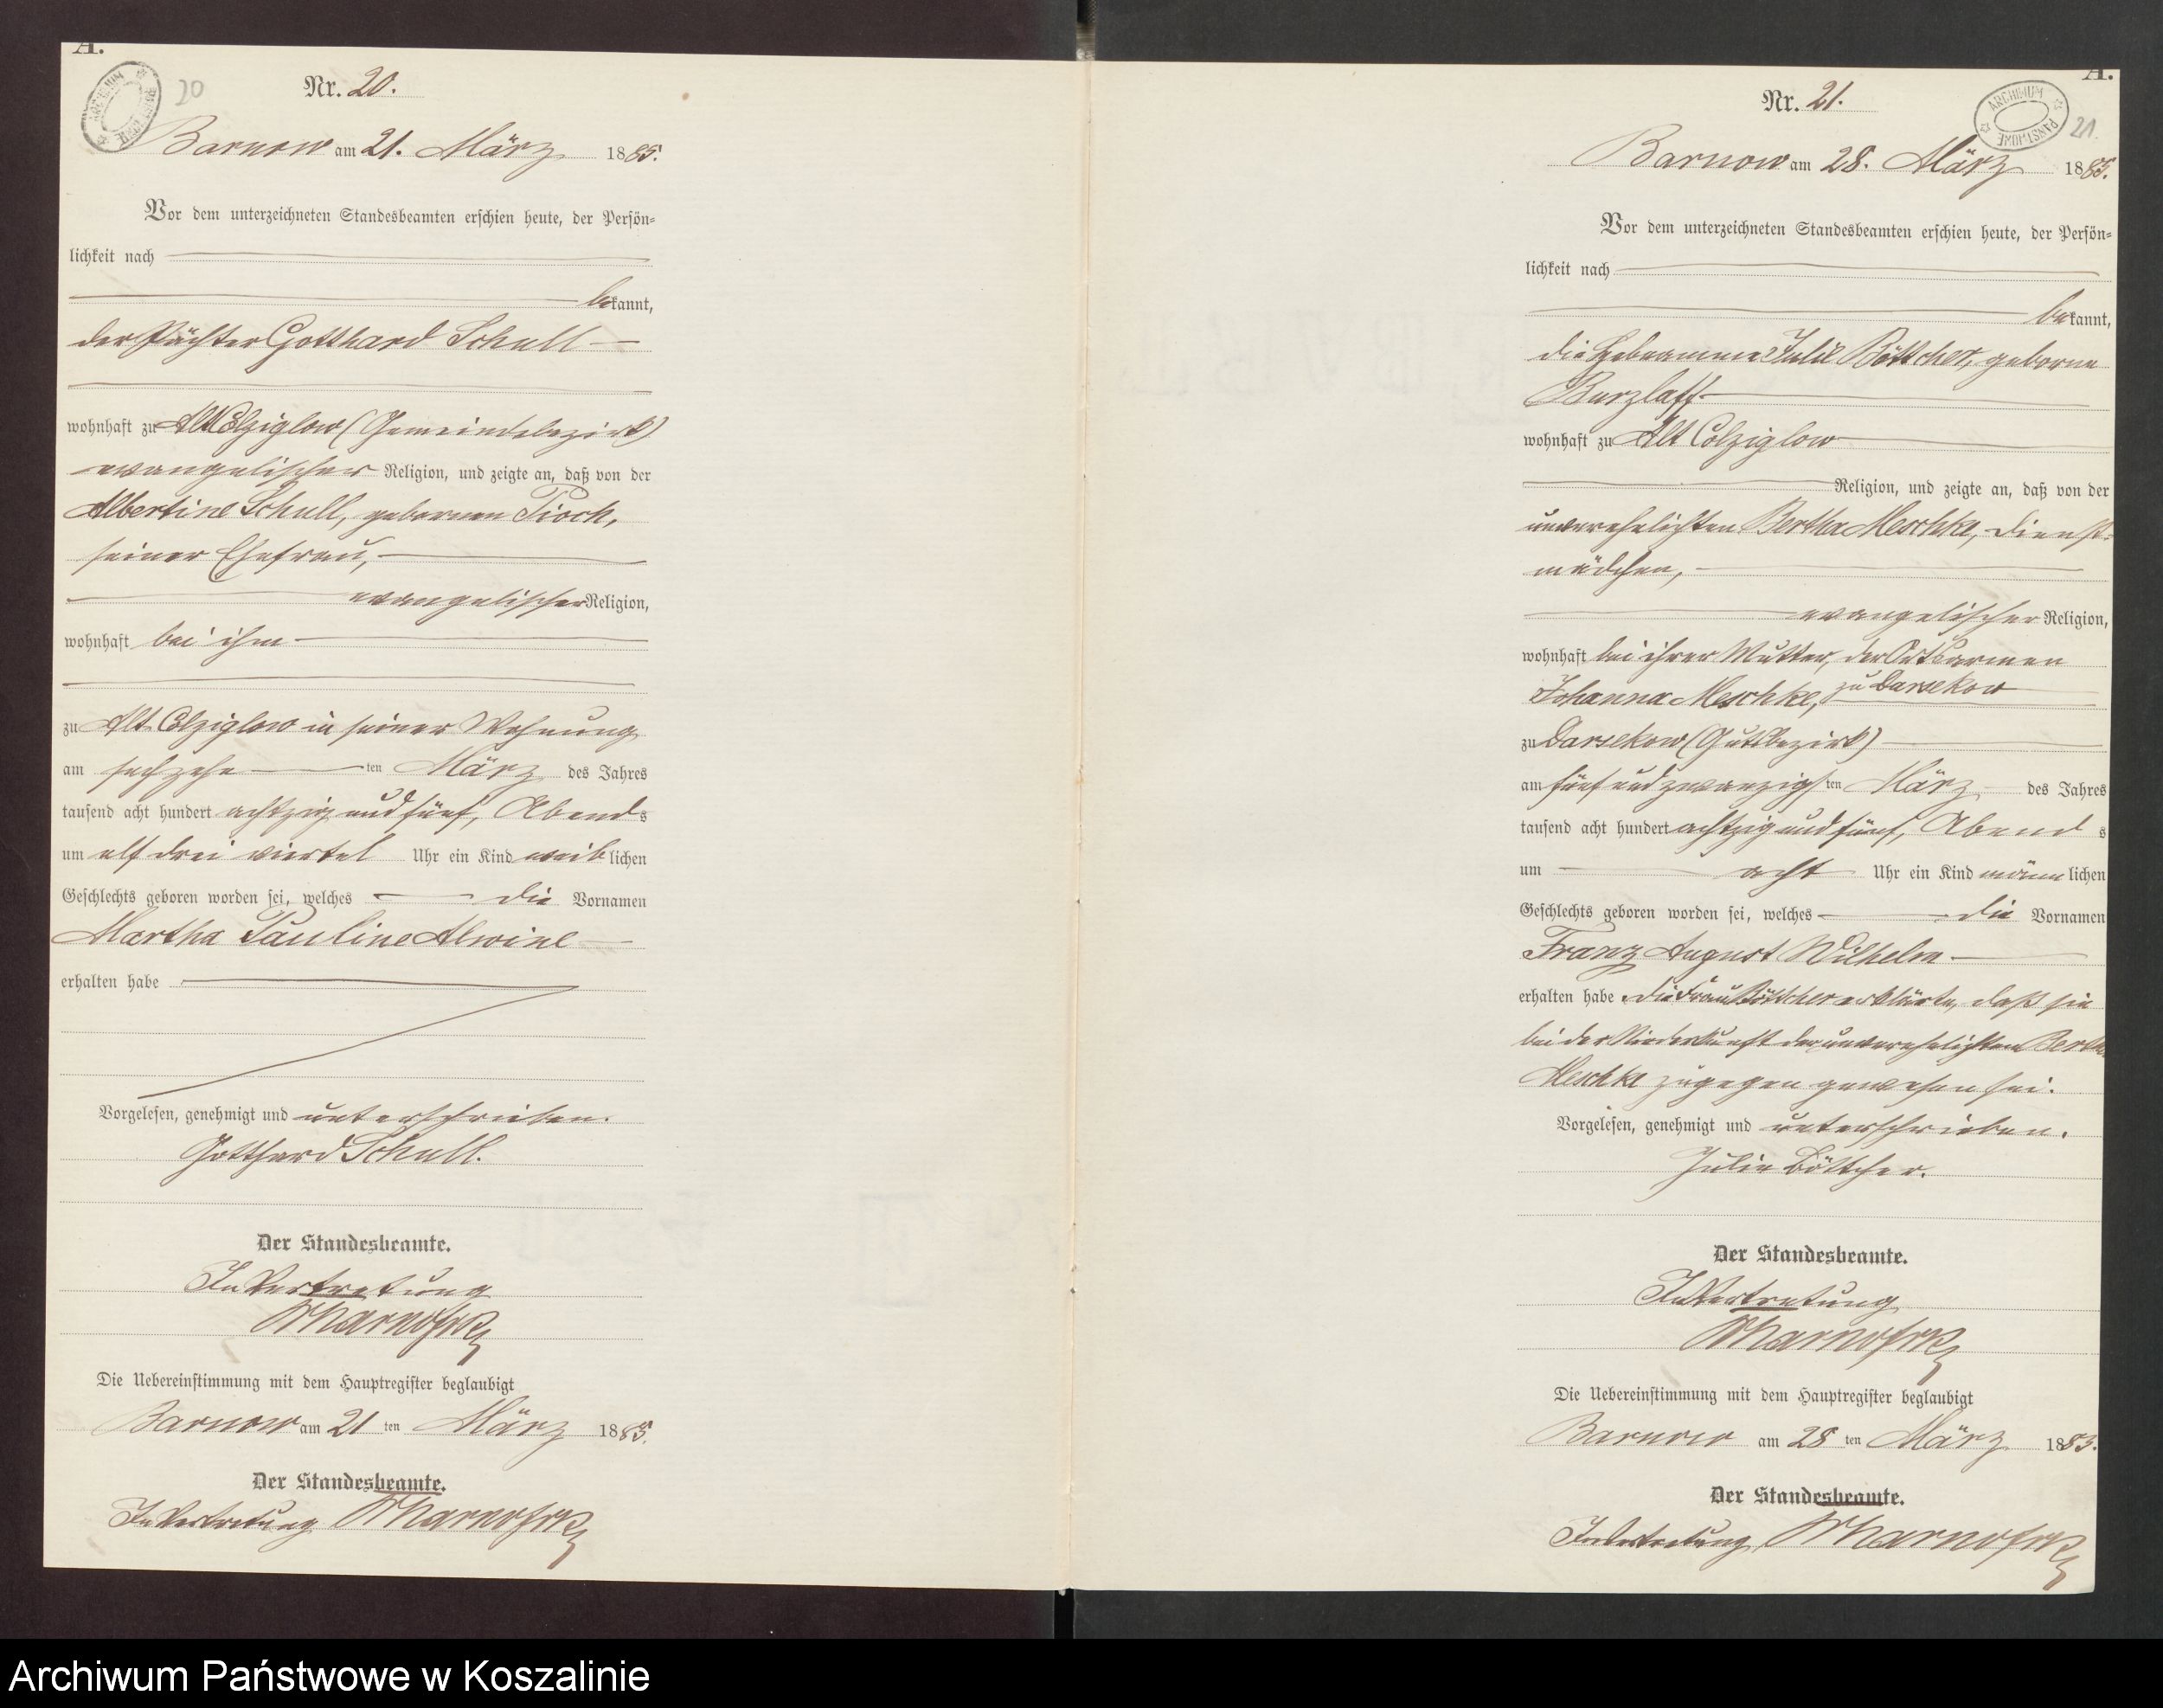 A.
ARCHIWUM PAŃSTWOWE
20
Nr. 20.
Barnow am 21. März 1885.
Vor dem unterzeichneten Standesbeamten erschien heute, der Persön-
lichkeit nach
bekannt,
der Pächter Gotthard Schull
wohnhaft zu Alt Colziglow (Gemeindebezirk)
evangelischer Religion, und zeigte an, daß von der
Albertine Schull, gebornen Pioch,
seiner Ehefrau,
evangelischer Religion,
wohnhaft bei ihm
zu Alt Colziglow in seiner Wohnung
am sechzehn ten März des Jahres
tausend acht hundert achtzig und fünf, Abends
um elf drei viertel Uhr ein Kind weiblichen
Geschlechts geboren worden sei, welches die Vornamen
Martha Pauline Alwine
erhalten habe
Vorgelesen, genehmigt und unterschrieben.
Gotthard Schull.
Der Standesbeamte.
In Vertretung
Die Uebereinstimmung mit dem Hauptregister beglaubigt
Barnow am 21 ten März 1885.
Der Standesbeamte.
In Vertretung
A.
ARCHIWUM PAŃSTWOWE
21.
Nr. 21.
Barnow am 28. März 1885.
Vor dem unterzeichneten Standesbeamten erschien heute, der Persön-
lichkeit nach
bekannt,
die Hebeamme Julie Böttcher, geborne
Burzlaff
wohnhaft zu Alt Colziglow
Religion, und zeigte an, daß von der
unverehelichten Bertha Meschke, Dienst-
mädchen,
evangelischer Religion,
wohnhaft bei ihrer Mutter, der Ortsarmen
Johanna Meschke, zu Darsekow
zu Darsekow (Gutsbezirk)
am fünf und zwanzigsten März des Jahres
tausend acht hundert achtzig und fünf, Abends
um acht Uhr ein Kind männlichen
Geschlechts geboren worden sei, welches die Vornamen
Franz August Wilhelm
erhalten habe. Die Frau Böttcher erklärte, daß sie
bei der Niederkunft der unverehelichten Bertha
Meschke zugegen gewesen sei.
Vorgelesen, genehmigt und unterschrieben.
Julie Böttcher.
Der Standesbeamte.
In Vertretung
Die Uebereinstimmung mit dem Hauptregister beglaubigt
Barnow am 28 ten März 1885.
Der Standesbeamte.
In Vertretung
Archiwum Państwowe w Koszalinie